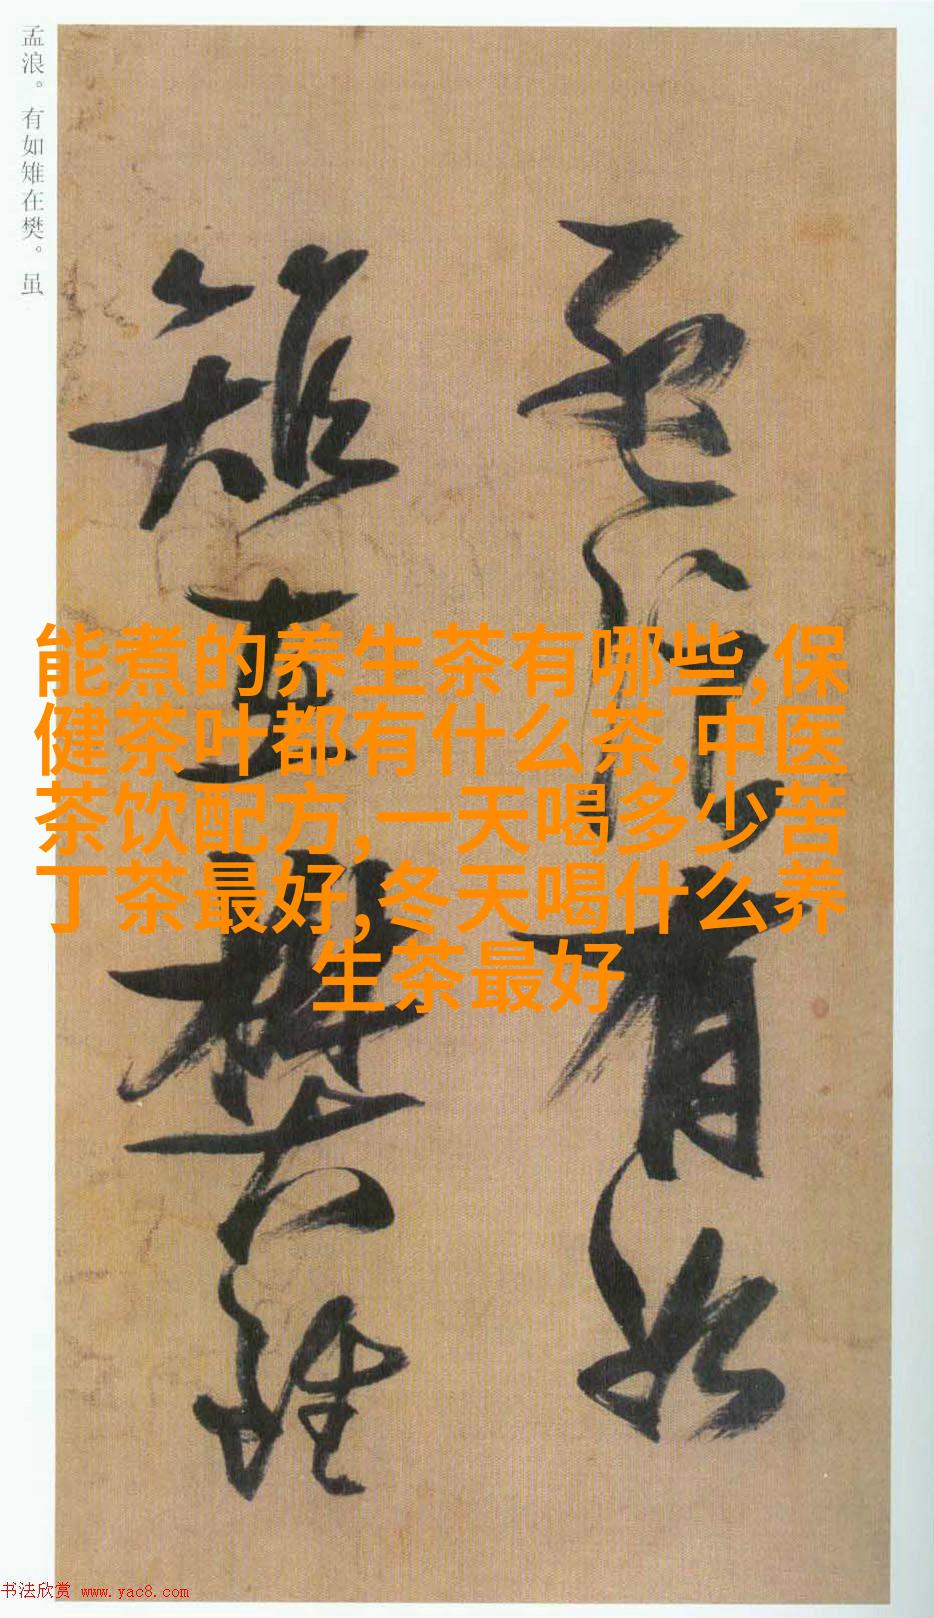 孟浪。有如雉在樊。虽
孟浪有如
雉在樊虽
能煮的养生茶有哪些,保
健茶叶都有什么茶,中医
茶饮配方,一天喝多少苦
丁茶最好,冬天喝什么养
生茶最好
书法欣赏 www.yac8.com